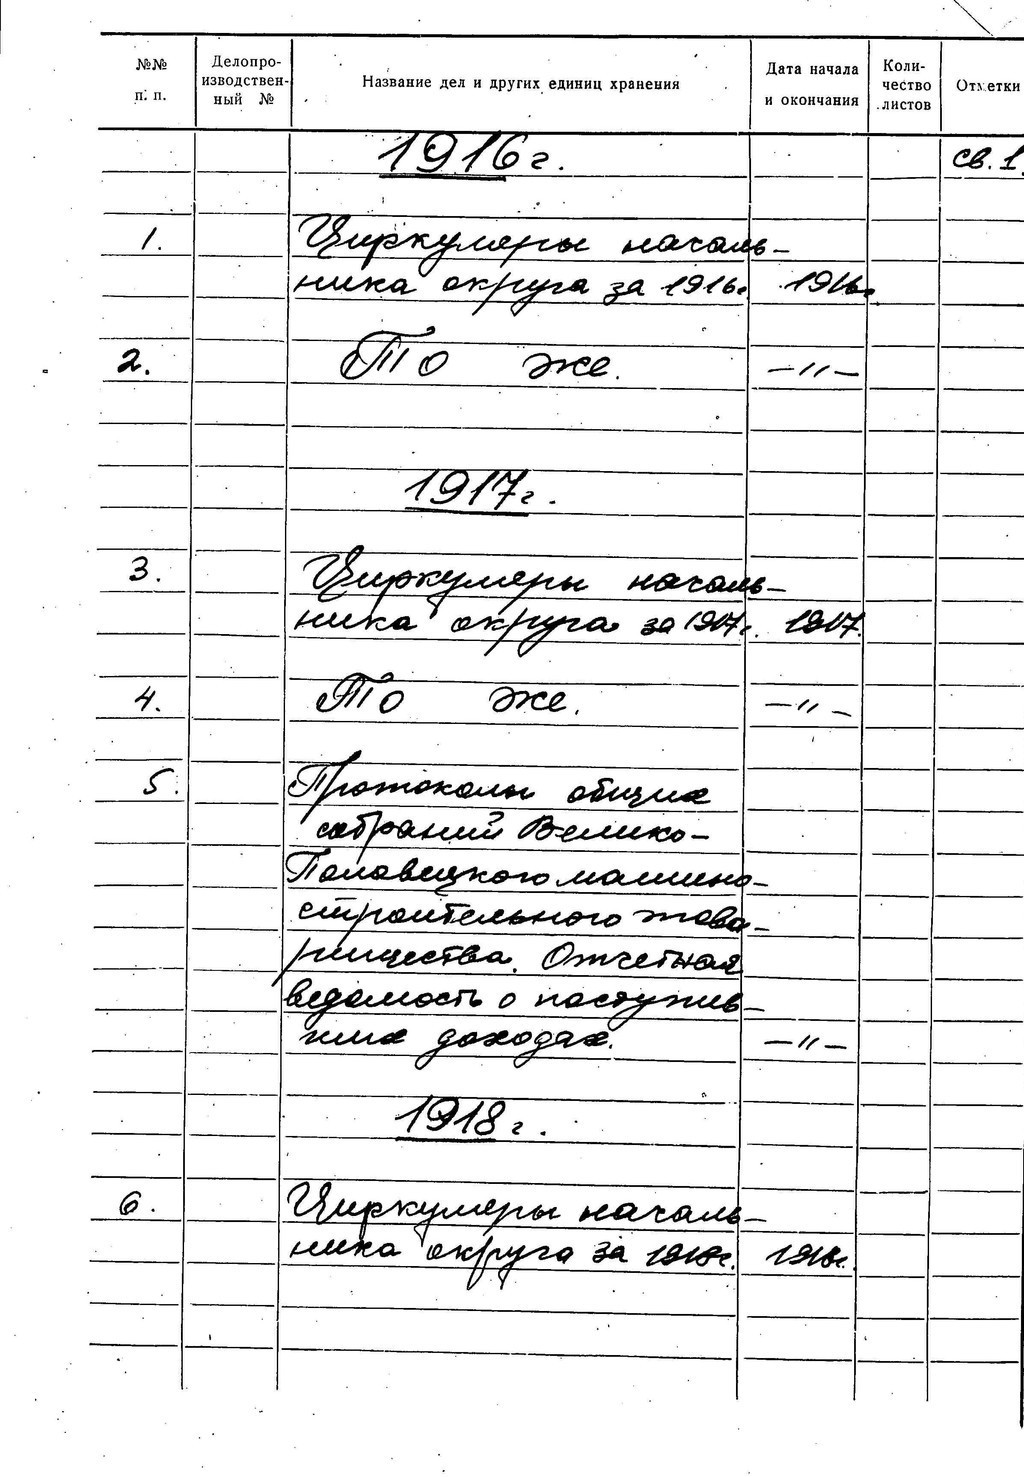 №№ п. п.
Делопро-
изводствен-
ный №
Название дел и других единиц хранения
Дата начала
и окончания
Коли-
чество
листов
Отметки
1916 г. св. 1.
1. Циркуляры началь-
ника округа за 1916г. 1916г.
2. То же. —"—
1917 г.
3. Циркуляры началь-
ника округа за 1917г. 1917.
4. То же. —"—
5. Протоколы общих
собраний Велико-
Половецкого машино-
строительного това-
рищества. Отчетная
ведомость о поступив-
ших доходах. —"—
1918 г.
6. Циркуляры началь-
ника округа за 1918г. 1918г.